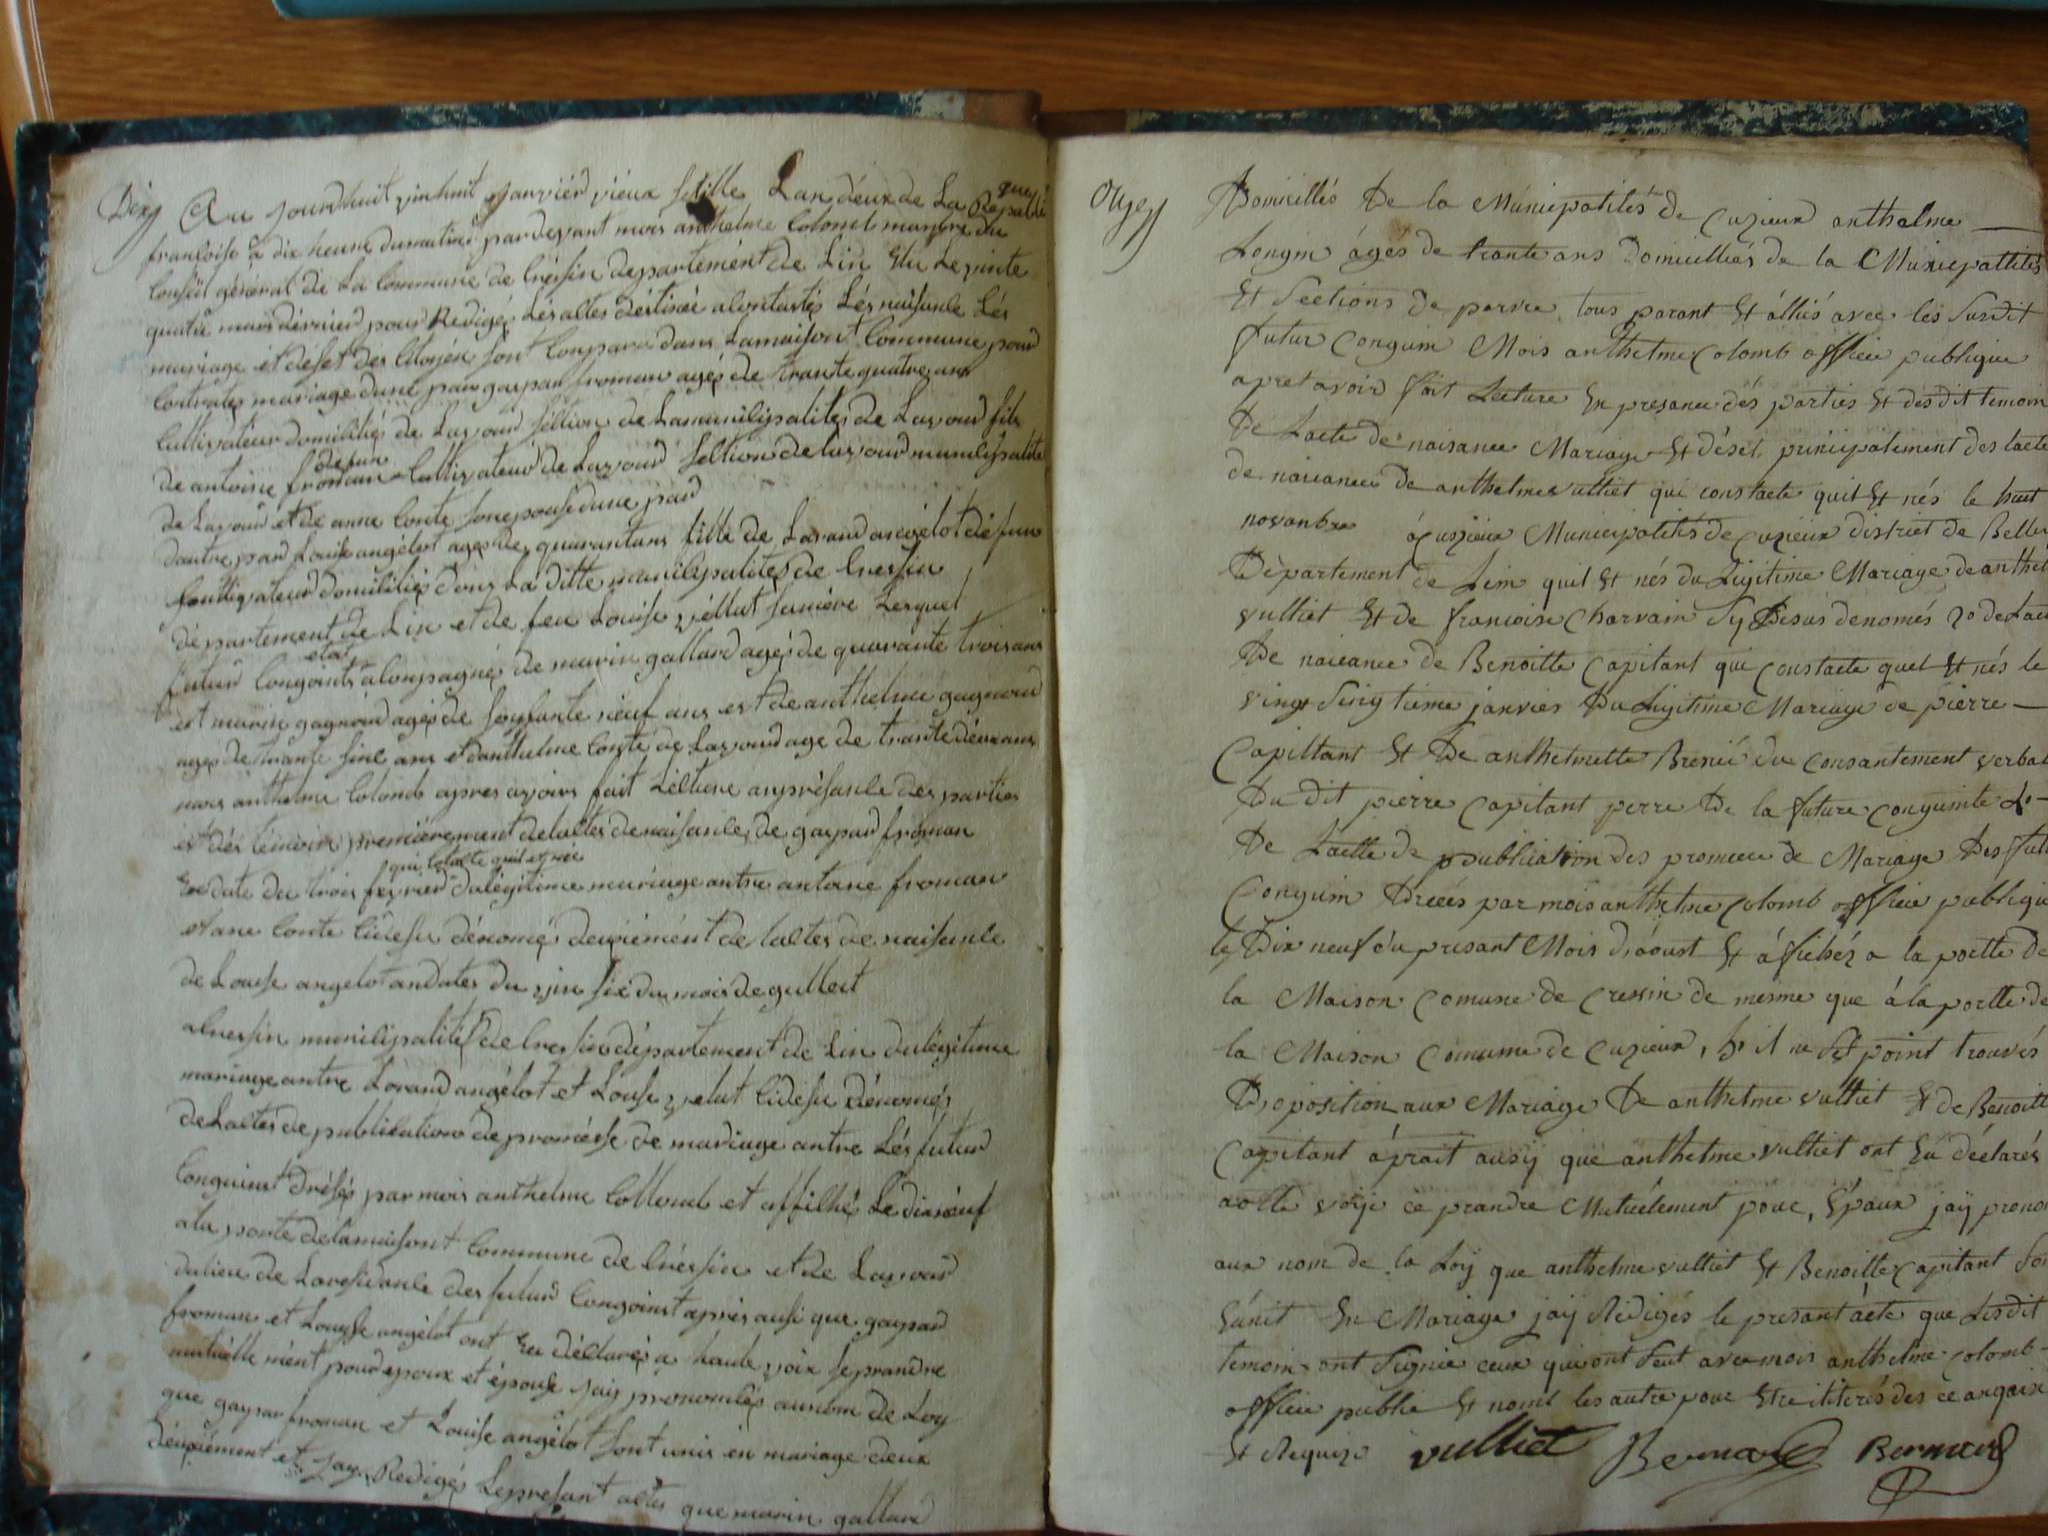 Dixj Au jourdhuit vinhuit Janviér viéux stille Lan déux de La Republi
que
françoise a dix heure dumatined pardevant mois anthelme Colomb manbre du
Conseil général de la Commune de Créssin departemént de Lin
quatre mars dérniér pour Redigés Lés altes déstinée a Lés naisanse Lés
mariage et déset des Citoyén sont Conparu dans Lamaisont Commune pour
mariage dune pard gaspar froman agés de trante quatre ans
Cultivateur domiliés de Lavourd séltion de Lamunilipalités de Lavourd fils
défun
de antoine froman Cultivateur de Lavourd séltion de Lavourd munilipalité
de Lavourd et de anne Conte son epouse dune pard
dautre pard Louise angélot agés de quarantans fille de Lorand angélot défun
Cultivateur domiliés dans La ditte munilipalités de Créssin
département de Lin et de feu Louise vélliut Lesquel
etat
futur Congoints alonpagnés de marin gallard agés de quarante troisans
et marin gagnoud agés de soissante neuf ans et de anthelme gagnoud
agés de trante sinc ans et danthelme Conte de Lavourd age de trante déux ans
mois anthelme Colomb apres avoirs fait Lélture anprésanse des parties
et dés témoin premiérement delaltes denaisanse de gaspard froman
qui Cotate quil et née
En date du trois févriér du légitime mariage antre antoine froman
et ane Conte Cidesu dénomé deuxiémént de laltes de naisanse
de Louise angelot andates du vin six du mois de guilleit
a Cressin munilipalités de Cressin département de Lin du légitime
mariage antre Lorand angélot et Louise velut Cidesu dénomés
de Laltes de publication de proméese de mariage antre Lés futurd
Congoint drésés par mois anthelme Collomb et affilhé Le dixnéuf
a la porte delamaisont Commune de Créssin et de Lavourd
dulieu de Laresidanse des futurd Congoint aprés ausi que gaspard
froman et Louise angélot ont eu déclarés a haute voix seprandre
mutuélle mént pour epoux et épouse Jay prononsés aunom de Loy
que gaspar froman et Louise angélot sont unis en mariage
déuxiément et Jay Redigés Leprésant altes que marin gallard
Onzej
Domicilliés De la Municipatités de Cuzieux anthelme
Longin ágés de trante ans Domicilliés de la Municipattités
Et Sections de parve tous parant Et álliés avec les Susdit
futur Conguin Mois anthelme Colomb officie publique
apret avoir fait Lecture En presance dés parties Et desdit temoin
De Lacte de naisance Mariage Et déset principalement des lacte
de naicance de anthelme vulliet qui constacte quil Et nés le huit
novanbre á Cuzieux Municipalités de Cuzieux district de Belley
Département de Lein quil Et nés du Légitime Mariage de anthel
vulliet Et de francoise Charvain Sy Desus denomés 2o de Lacte
De naicance de Benoitte Capitant qui Constacte quel Et nés le
vingt Sinq tieme janvier Du Légitime Mariage de pierre
Capittant Et De anthelmette Brenié du Consantement verbal
Du dit pierre Capitant perre De la future Conguinte
De Lactte de publication des promece de Mariage Des futt
Conguin Drecés par mois anthelme Colomb officie publique
le Dix neuf du presant Mois d'aoust Et áffichéz a la portte de
la Maison Comune de Cressin de mesme que á la portte de
la Maison Comume de Cuzieux, il ne Set point trouvés
D'oposition aux Mariage De anthelme vulliet Et de Benoitt
Capitant áprait ausy que anthelme vulliet ont Eú déclarés
aotte voije ce prandre Mutuélement pouc, Épaux jaÿ prono
aux nom de la Loy que anthelme vulliet Et Benoitte Capitant Son
Eúnit En Mariage jaÿ Rédigés le presant ácte que Lesdit
temoin ont Signie ceux qui ont Seut avec mois anthelme Colomb
officie public Et nomt les autre pouc Etre ititerés des ce anquis
Et Requize vulliet Bernard Bernard